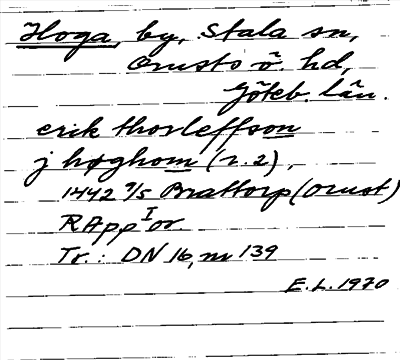 Hoga, by, Stala sn,
Orusts ö. hd,
Göteb. län.
erik thorleffson
j høghom (r. 2),
1442 9/5 Brattorp (Orust)
RApp I or
Tr.: DN 16, nr 139
E.L. 1970